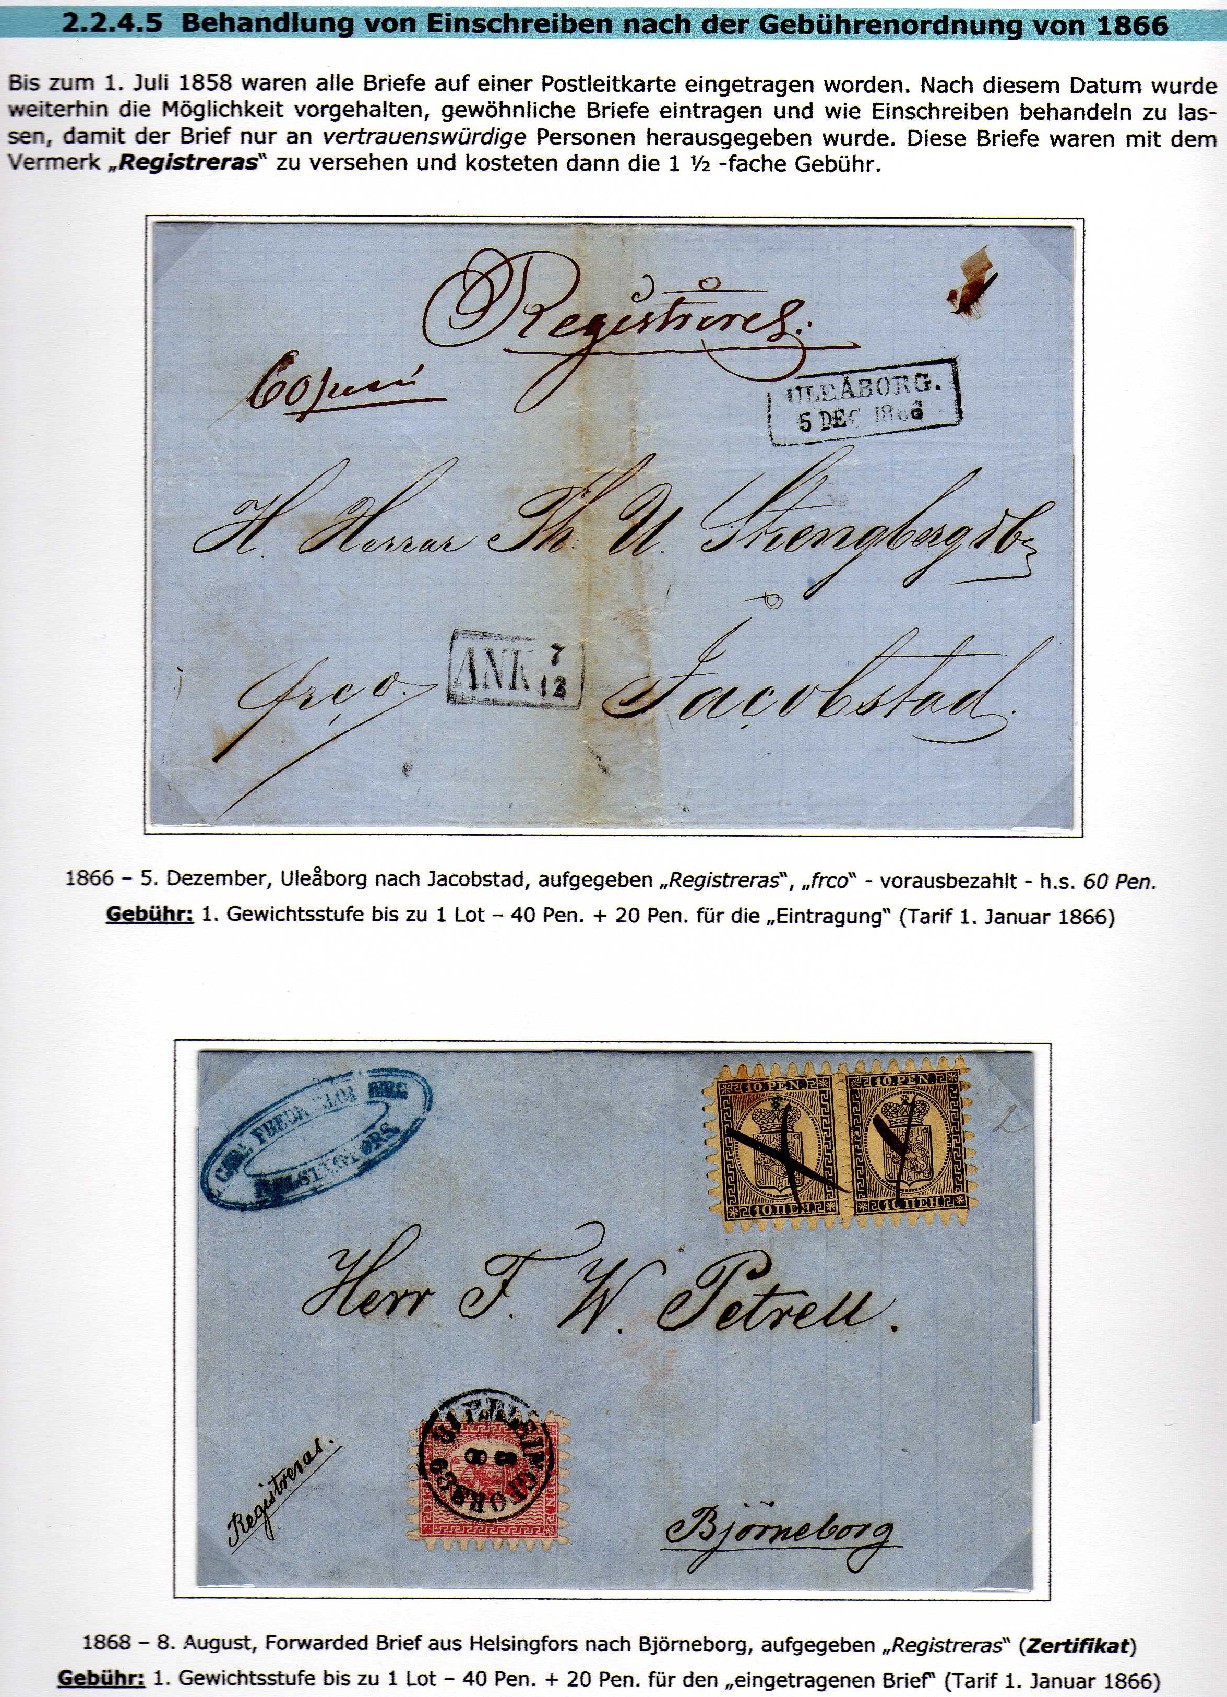 2.2.4.5 Behandlung von Einschreiben nach der Gebührenordnung von 1866
Bis zum 1. Juli 1858 waren alle Briefe auf einer Postleitkarte eingetragen worden. Nach diesem Datum wurde
weiterhin die Möglichkeit vorgehalten, gewöhnliche Briefe eintragen und wie Einschreiben behandeln zu las-
sen, damit der Brief nur an vertrauenswürdige Personen herausgegeben wurde. Diese Briefe waren mit dem
Vermerk „Registreras“ zu versehen und kosteten dann die 1 ½ -fache Gebühr.
60
ULEÅBORG.
5 DEC 1866
H. Herrar Th. U. Strengberg
frco.
ANK 7
12
Jacobstad.
1866 – 5. Dezember, Uleåborg nach Jacobstad, aufgegeben „Registreras“, „frco“ - vorausbezahlt - h.s. 60 Pen.
Gebühr: 1. Gewichtsstufe bis zu 1 Lot – 40 Pen. + 20 Pen. für die „Eintragung“ (Tarif 1. Januar 1866)
10 PEN. 10 PEN.
10 ПЕН 10 ПЕН
HELSINGFORS
Herr F. W. Petrell.
HELSINGFORS
8 8
Registreras.
Björneborg
1868 – 8. August, Forwarded Brief aus Helsingfors nach Björneborg, aufgegeben „Registreras“ (Zertifikat)
Gebühr: 1. Gewichtsstufe bis zu 1 Lot – 40 Pen. + 20 Pen. für den „eingetragenen Brief“ (Tarif 1. Januar 1866)